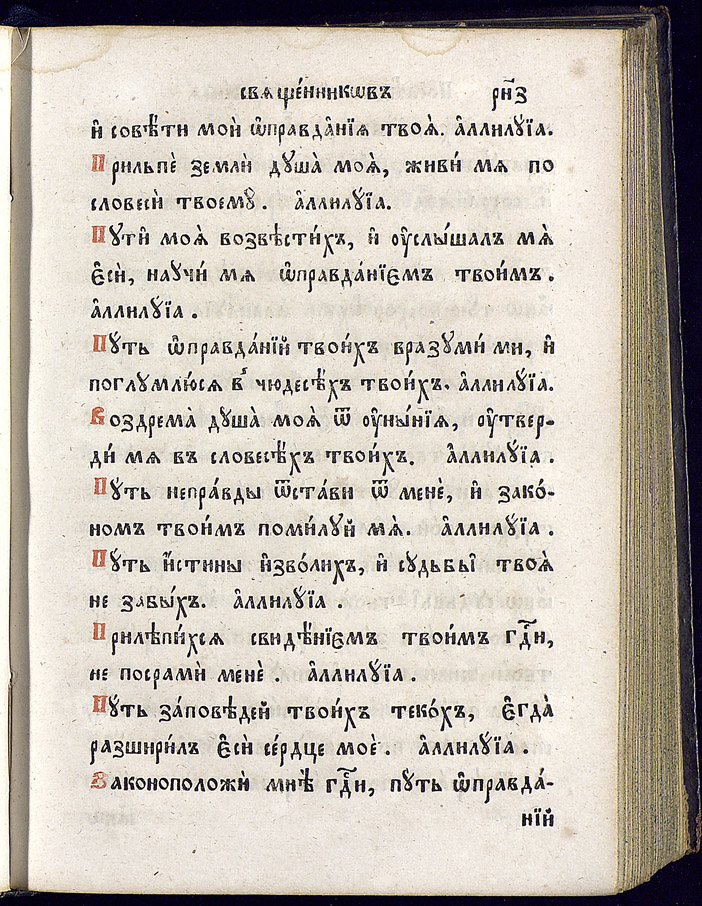 свѧще́нникѡвъ рн҃з
и҆ совѣ́ти моѝ ѡ҆правда̑нїѧ твоѧ̀. а҆ллилꙋ́їа.
Прильпѐ землѝ дꙋша̀ моѧ̀, живи́ мѧ по
словесѝ твоемꙋ̀. а҆ллилꙋ́їа.
Пꙋти̑ моѧ̀ возвѣсти́хъ, и҆ ᲂу҆слы́шалъ мѧ̀
є҆сѝ, наꙋчи́ мѧ ѡ҆правда́нїємъ твои̑мъ.
а҆ллилꙋ́їа.
Пꙋть ѡ҆правда́нїй твои́хъ вразꙋми́ ми, и҆
поглꙋмлю́сѧ в чюдесѣ́хъ твои́хъ. а҆ллилꙋ́їа.
Воздрема̀ дꙋша̀ моѧ̀ ѿ ᲂу҆ны́нїѧ, ᲂу҆твер-
ди́ мѧ въ словесѣ́хъ твои́хъ. а҆ллилꙋ́їа.
Пꙋть непра́вды ѿста́ви ѿ менѐ, и҆ зако́-
номъ твои́мъ поми́лꙋй мѧ̀. а҆ллилꙋ́їа.
Пꙋть и҆́стины и҆зво́лихъ, и҆ сꙋдьбы̑ твоѧ̀
не забы́хъ. а҆ллилꙋ́їа.
Прилѣпи́хсѧ свидѣ́нїємъ твои̑мъ гдⷭ҇и,
не посрамѝ менѐ. а҆ллилꙋ́їа.
Пꙋть за́повѣдей твои́хъ теко́хъ, є҆гда̀
разшири́лъ є҆сѝ се́рдце моѐ. а҆ллилꙋ́їа.
Законоположѝ мнѣ̀ гдⷭ҇и, пꙋть ѡ҆правда́-
нїй